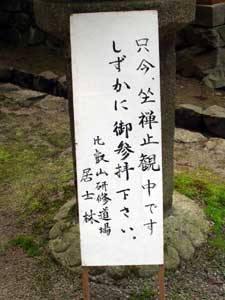 只今、坐禅止観中です
しずかに御参拝下さい。
比叡山研修道場
居士林